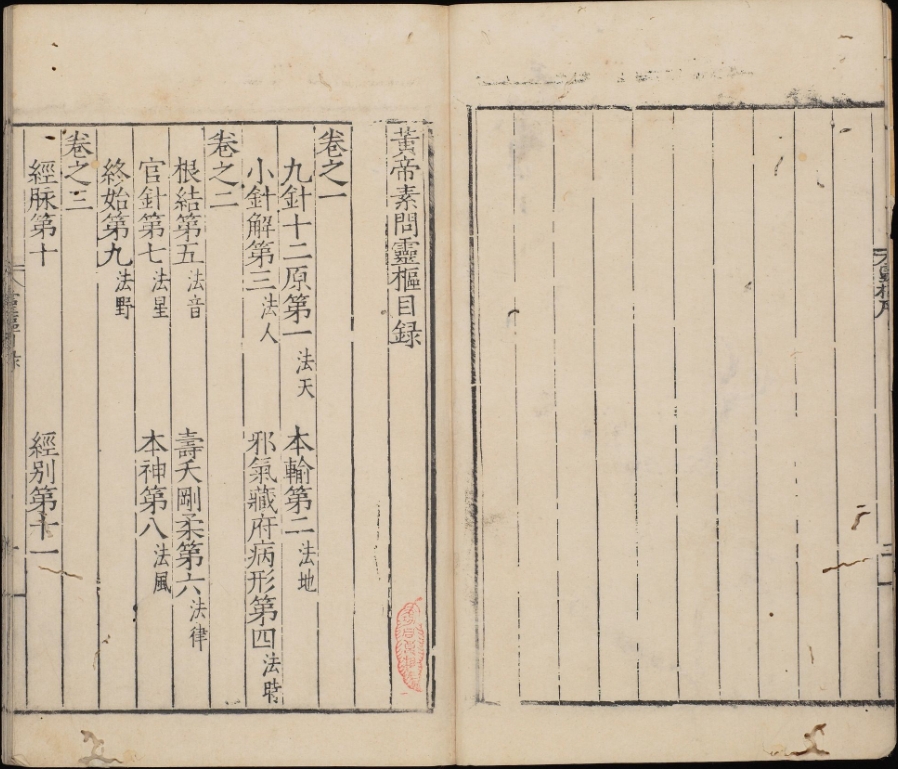 黃帝素問靈樞目録
卷之一
九針十二原第一 法天 本輸第二 法地
小針解第三 法人 邪氣藏府病形第四 法時
卷之二
根結第五 法音 壽夭剛柔第六 法律
官針第七 法星 本神第八 法風
終始第九 法野
卷之三
經脉第十 經别第十一